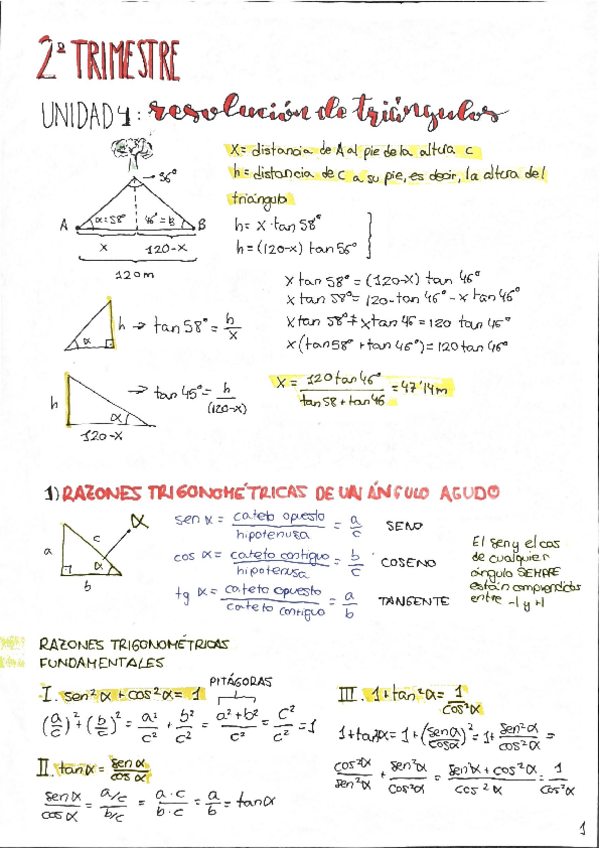 2º TRIMESTRE
UNIDAD 4: resolución de triángulos
x = distancia de A al pie de la altura c
h = distancia de c a su pie, es decir, la altura del
triángulo
36º
A α=58º 46º=B B
x 120-x
120m
h = x · tan 58º
h = (120-x) tan 56º
x tan 58º = (120-x) tan 46º
x tan 58º = 120·tan 46º - x tan 46º
x tan 58º + x tan 46 = 120 tan 46º
x (tan 58º + tan 46º) = 120 tan 46º
h → tan 58º = h/x
α
h → tan 45º = h/(120-x)
α
120-x
x = 120 tan 46º / tan 58 + tan 46 = 47'14m
1) RAZONES TRIGONOMÉTRICAS DE UN ÁNGULO AGUDO
a c α b α
sen α = cateto opuesto / hipotenusa = a/c SENO
cos α = cateto contiguo / hipotenusa = b/c COSENO
tg α = cateto opuesto / cateto contiguo = a/b TANGENTE
El sen y el cos
de cualquier
ángulo SIEMPRE
están comprendidos
entre -1 y +1
RAZONES TRIGONOMÉTRICAS
FUNDAMENTALES
I. sen²α + cos²α = 1
PITÁGORAS
(a/c)² + (b/c)² = a²/c² + b²/c² = a²+b²/c² = c²/c² = 1
II. tan α = sen α / cos α
sen α / cos α = a/c / b/c = a·c / b·c = a/b = tan α
III. 1 + tan²α = 1/cos²α
1 + tan²α = 1 + (sen α / cos α)² = 1 + sen²α / cos²α =
cos²α / sen²α + sen²α / cos²α = sen²α + cos²α / cos²α = 1 / cos²α
1